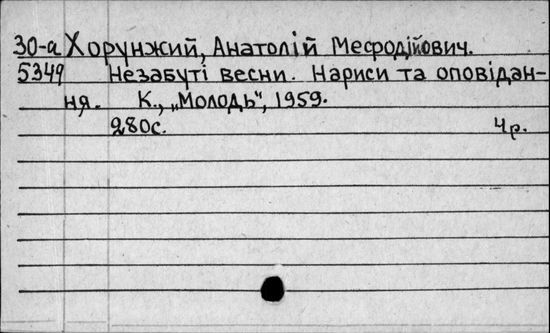 30-а Хорунжий, Анатолій Мефодійович.
5349 Незабуті весни. Нариси та оповідан-
ня. К., „Молодь", 1959.
280с. 4р.